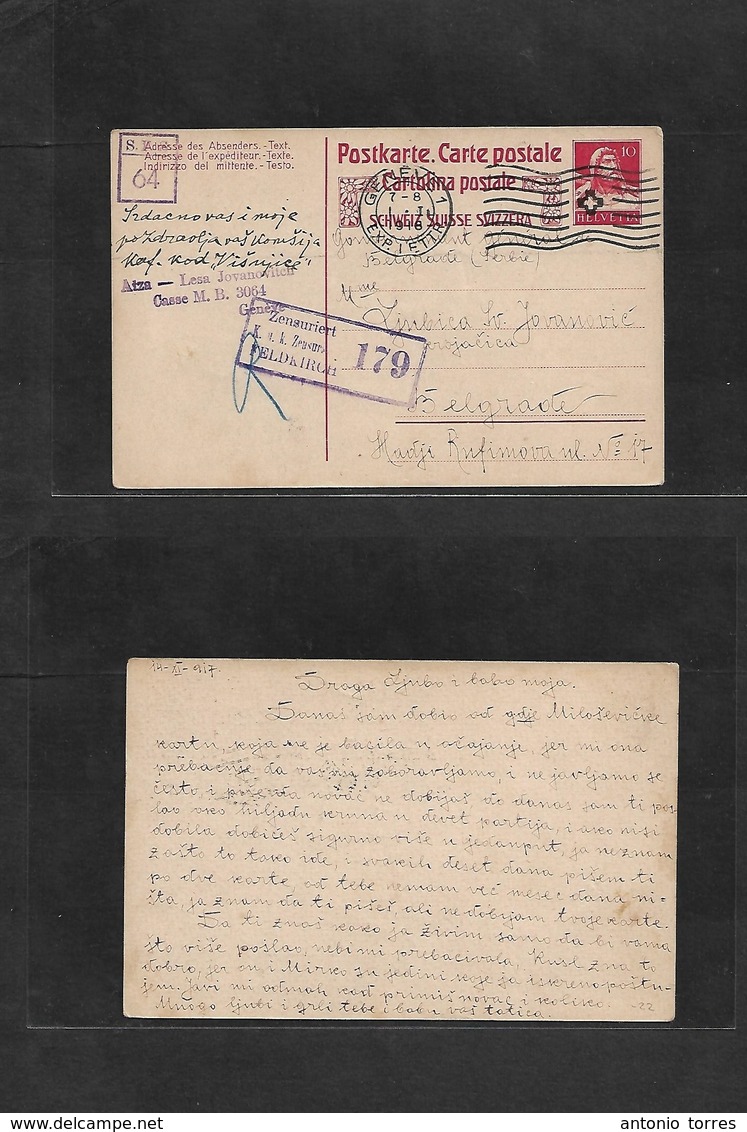 S.
64
Adresse des Absenders.-Text.
Adresse de l'expéditeur.-Texte.
Indirizzo del mittente.-Testo.
Postkarte. Carte postale
Cartolina postale
SCHWEIZ SUISSE SVIZZERA
10
HELVETIA
GENÈVE 1
7-8
1918
EXP. LETTR.
Srdačno vas i moje
pozdravlja vaš Komšija
Kaf. kod "Višnjice"
Aiza — Lesa Jovanovitch
Casse M. B. 3064
Genève
Zensuriert
K. u. k. Zensur
FELDKIRCH
179
Belgrade (Serbie)
Mme
Ljubica Sv. Jovanović
krojačica
Belgrade
Hadji Rufimova ul. No 17
14-XI-917.
Draga Ljubo i babo moja.
Danas sam dobio od gdje Miloševićke
kartu, koja me je bacila u očajanje, jer mi ona
prebacuje da vas mi zaboravljamo, i ne javljamo se
često, i posle da novac ne dobijaš, do danas sam ti pos-
lao oko hiljadu kruna u devet partija, i ako nisi
dobila dobićeš sigurno više u jedanput, ja ne znam
zašto to tako ide, i svakih deset dana pišem ti
po dve karte, od tebe nemam već mesec dana ni-
šta, ja znam da ti pišeš, ali ne dobijam tvoje karte.
Da ti znaš kako ja živim samo da bi vama
što više poslao, nebi mi prebacivala, Kusl zna to
dobro, jer on i Mirko su jedini koje ja iskreno poštu-
jem. Javi mi odmah kad primiš novac i koliko.
Mnogo ljubi i grli tebe i babu vaš tatica.
-22
antonio torres